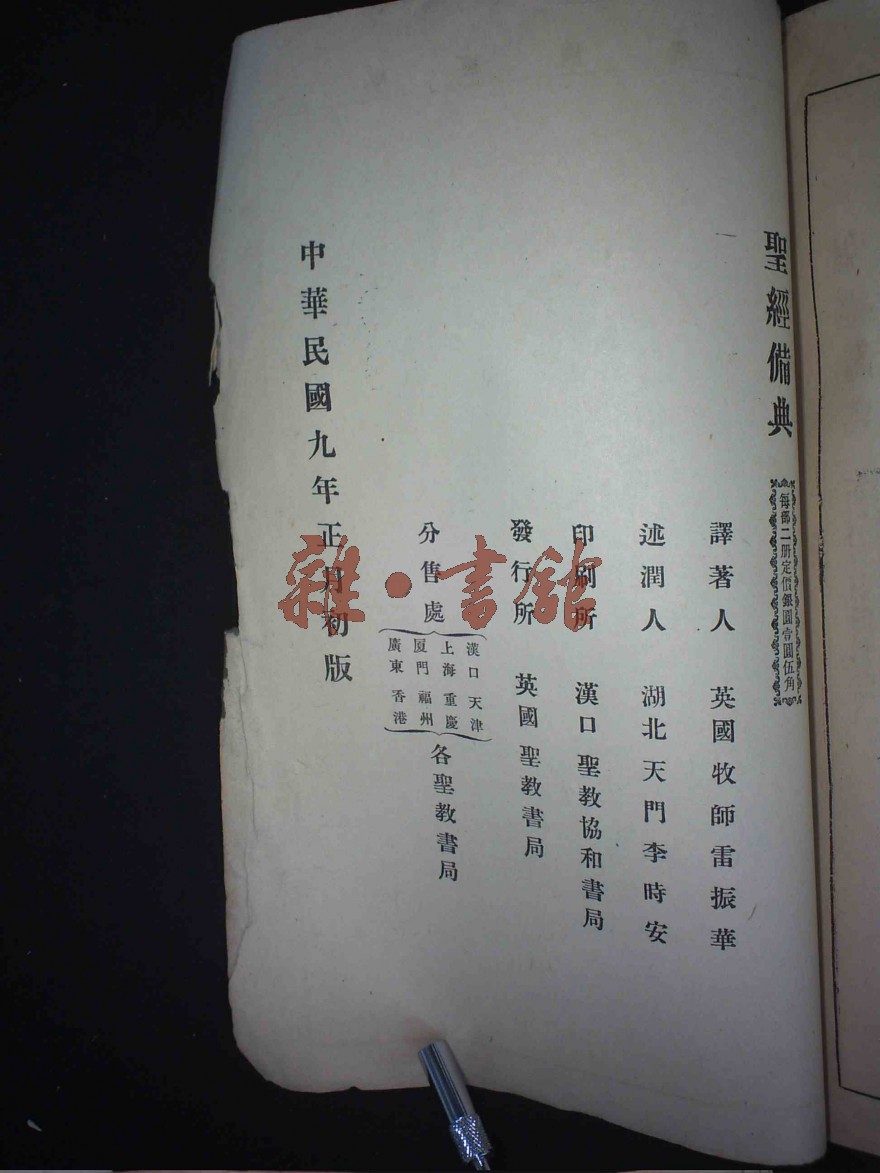 聖經備典
每部二册定價銀圓壹圓伍角
譯著人 英國牧師雷振華
述潤人 湖北天門李時安
印刷所 漢口聖教協和書局
發行所 英國聖教書局
分售處
漢口 天津
上海 重慶
厦門 福州
廣東 香港
各聖教書局
中華民國九年正月初版
雜·書館